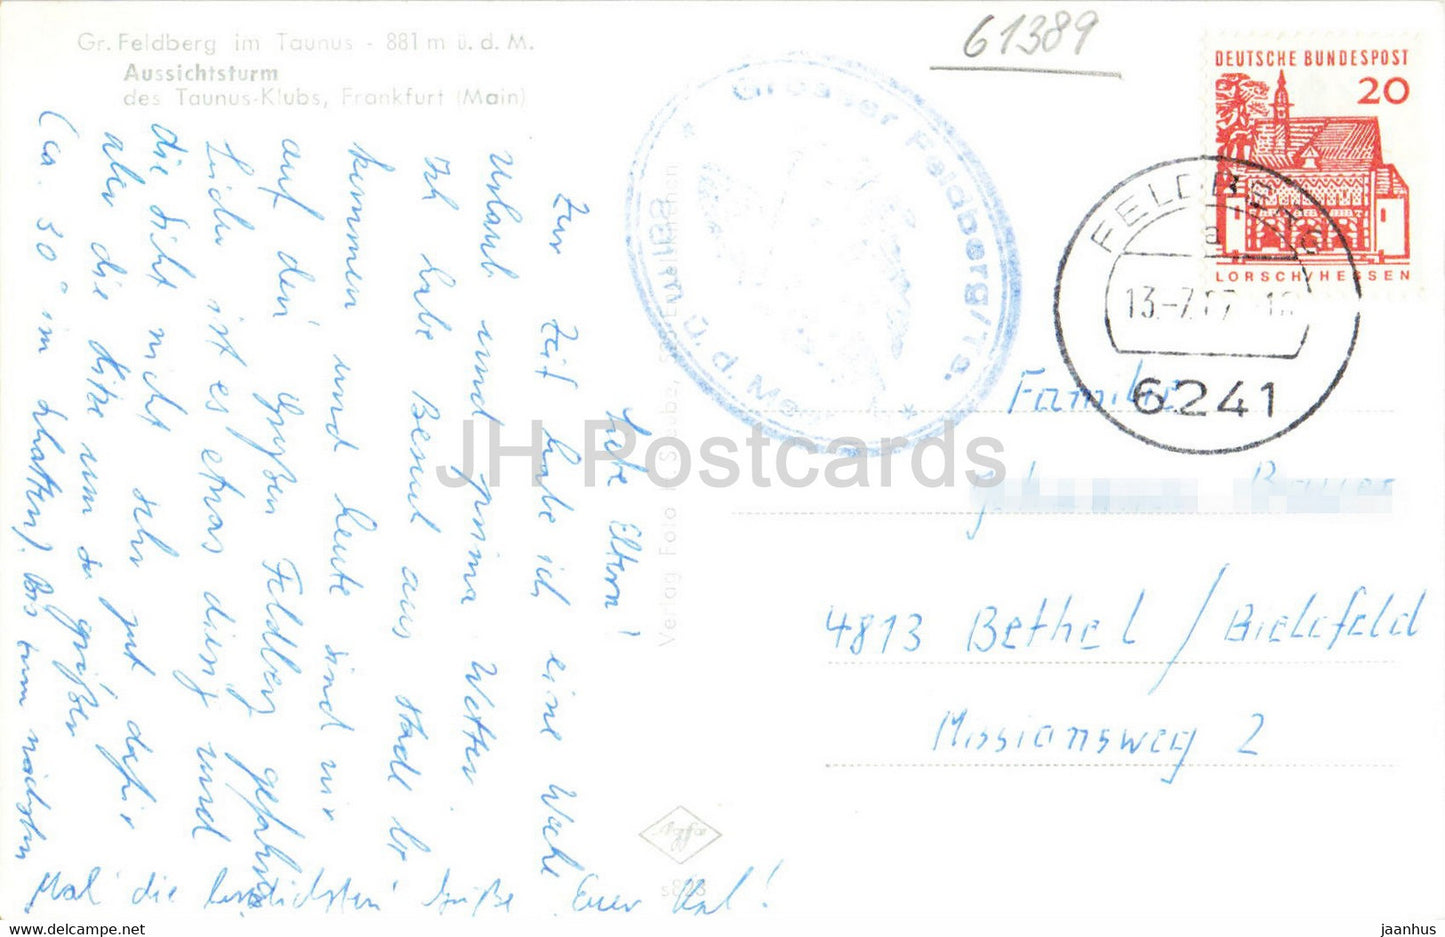 Gr. Feldberg im Taunus - 881 m ü. d. M.
Aussichtsturm
des Taunus-Klubs, Frankfurt (Main)
61389
DEUTSCHE BUNDESPOST
20
LORSCH/HESSEN
FELDBERG
a
13.-7.67
6241
Grosser Feldberg/Ts.
* 881 m ü. d. M *
Liebe Eltern!
Zur Zeit habe ich eine Woche
Urlaub und prima Wetter.
Ich habe Besuch aus
kommen und heute sind wir
auf den Großen Feldberg gefahren
Leider ist es etwas diesig und
die Sicht nicht sehr gut dafür
aber die Hitze um so größer
(ca. 30° im Schatten). Bis zum nächsten
Mal die herzlichsten Grüße Euer
Verlag Foto
Familie
4813 Bethel / Bielefeld
Missionsweg 2
JH Postcards
www.hipmarket.com
jaanhus